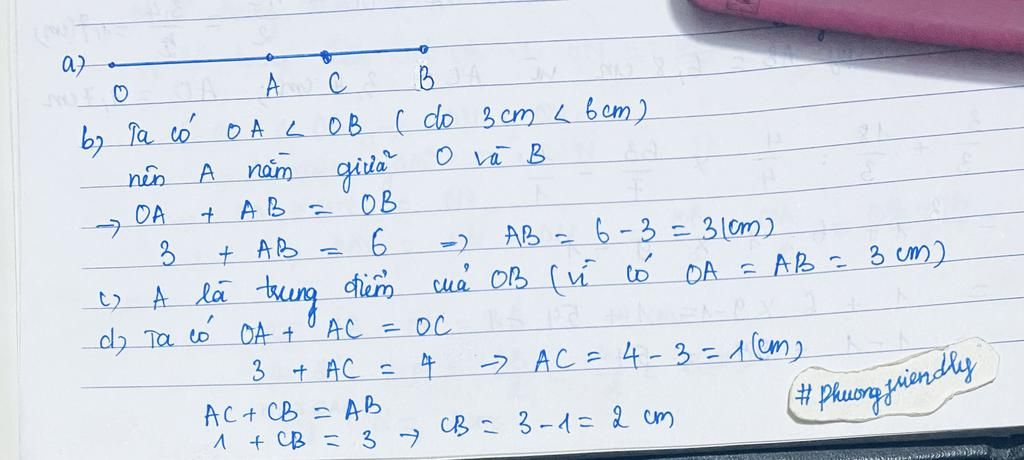 a)
O A C B
b) Ta có OA < OB ( do 3cm < 6cm)
nên A nằm giữa O và B
→ OA + AB = OB
3 + AB = 6 → AB = 6 - 3 = 3(cm)
c) A là trung điểm của OB (vì có OA = AB = 3 cm)
d) Ta có OA + AC = OC
3 + AC = 4 → AC = 4 - 3 = 1(cm)
AC + CB = AB
1 + CB = 3 → CB = 3 - 1 = 2 cm
#Phuongfriendly